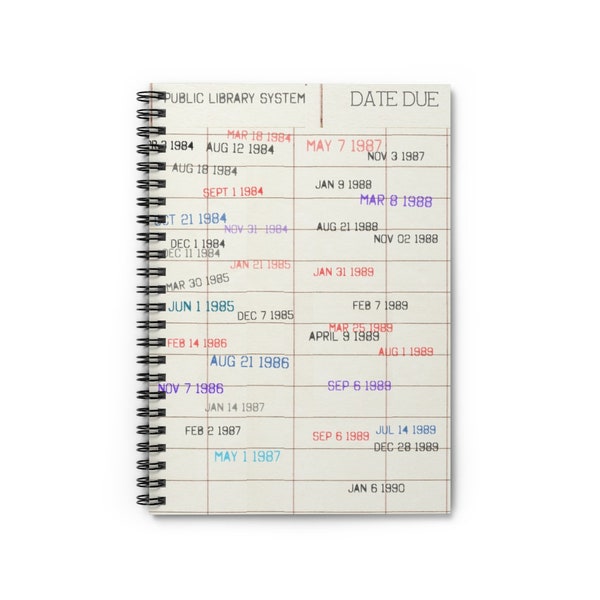 PUBLIC LIBRARY SYSTEM
DATE DUE
2 1984
MAR 18 1984
AUG 12 1984
AUG 18 1984
SEPT 1 1984
OCT 21 1984
NOV 31 1984
DEC 1 1984
DEC 11 1984
JAN 21 1985
MAR 30 1985
JUN 1 1985
DEC 7 1985
FEB 14 1986
AUG 21 1986
NOV 7 1986
JAN 14 1987
FEB 2 1987
MAY 1 1987
MAY 7 1987
NOV 3 1987
JAN 9 1988
MAR 8 1988
AUG 21 1988
NOV 02 1988
JAN 31 1989
FEB 7 1989
MAR 25 1989
APRIL 9 1989
AUG 1 1989
SEP 6 1989
SEP 6 1989
JUL 14 1989
DEC 28 1989
JAN 6 1990